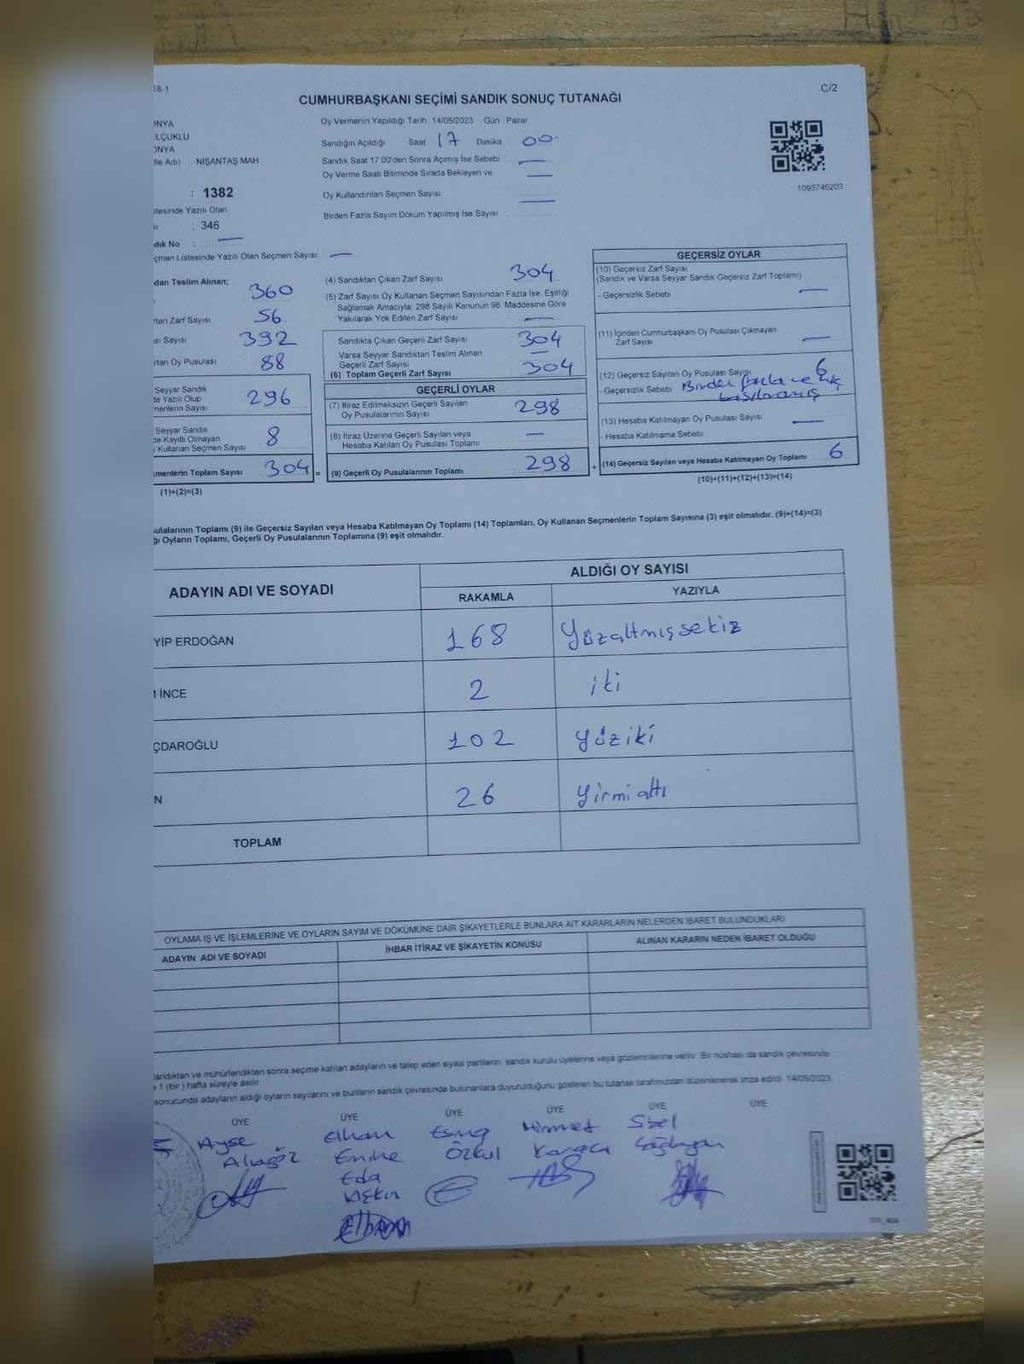 18-1
C/2
CUMHURBAŞKANI SEÇİMİ SANDIK SONUÇ TUTANAĞI
ONYA
ELÇUKLU
ONYA
lle Adı) NİŞANTAŞ MAH
: 1382
stesinde Yazılı Olan
: 346
ndık No : —
çmen Listesinde Yazılı Olan Seçmen Sayısı: —
Oy Vermenin Yapıldığı Tarih: 14/05/2023 Gün: Pazar
Sandığın Açıldığı Saat 17 Dakika 00
Sandık Saat 17:00'den Sonra Açılmış İse Sebebi —
Oy Verme Saati Bitiminde Sırada Bekleyen ve —
Oy Kullandırılan Seçmen Sayısı —
Birden Fazla Sayım Döküm Yapılmış İse Sayısı
1093746203
dan Teslim Alınan;
360
rtan Zarf Sayısı 56
sı Sayısı 392
rtan Oy Pusulası 88
Seyyar Sandık
de Yazılı Olup
menlerin Sayısı 296
Seyyar Sandık
de Kayıtlı Olmayan
Kullanan Seçmen Sayısı 8
menlerin Toplam Sayısı 304 =
(1)+(2)=(3)
(4) Sandıktan Çıkan Zarf Sayısı 304
(5) Zarf Sayısı Oy Kullanan Seçmen Sayısından Fazla İse, Eşitliği
Sağlamak Amacıyla; 298 Sayılı Kanunun 98. Maddesine Göre
Yakılarak Yok Edilen Zarf Sayısı —
Sandıkta Çıkan Geçerli Zarf Sayısı 304
Varsa Seyyar Sandıktan Teslim Alınan
Geçerli Zarf Sayısı —
(6) Toplam Geçerli Zarf Sayısı 304
GEÇERLİ OYLAR
(7) İtiraz Edilmeksizin Geçerli Sayılan
Oy Pusulalarının Sayısı 298
(8) İtiraz Üzerine Geçerli Sayılan veya
Hesaba Katılan Oy Pusulası Toplamı —
(9) Geçerli Oy Pusulalarının Toplamı 298 +
GEÇERSİZ OYLAR
(10) Geçersiz Zarf Sayısı
(Sandık ve Varsa Seyyar Sandık Geçersiz Zarf Toplamı)
- Geçersizlik Sebebi —
(11) İçinden Cumhurbaşkanı Oy Pusulası Çıkmayan
Zarf Sayısı —
(12) Geçersiz Sayılan Oy Pusulası Sayısı 6
- Geçersizlik Sebebi Birden fazla ve hiç
basılmamış
(13) Hesaba Katılmayan Oy Pusulası Sayısı —
- Hesaba Katılmama Sebebi
(14) Geçersiz Sayılan veya Hesaba Katılmayan Oy Toplamı 6
(10)+(11)+(12)+(13)=(14)
usulalarının Toplamı (9) ile Geçersiz Sayılan veya Hesaba Katılmayan Oy Toplamı (14) Toplamları, Oy Kullanan Seçmenlerin Toplam Sayısına (3) eşit olmalıdır. (9)+(14)=(3)
ğı Oyların Toplamı, Geçerli Oy Pusulalarının Toplamına (9) eşit olmalıdır.
ADAYIN ADI VE SOYADI ALDIĞI OY SAYISI
RAKAMLA YAZIYLA
YİP ERDOĞAN 168 Yüzaltmışsekiz
M İNCE 2 iki
IÇDAROĞLU 102 yüziki
N 26 yirmialtı
TOPLAM
OYLAMA İŞ VE İŞLEMLERİNE VE OYLARIN SAYIM VE DÖKÜMÜNE DAİR ŞİKAYETLERLE BUNLARA AİT KARARLARIN NELERDEN İBARET BULUNDUKLARI
ADAYIN ADI VE SOYADI İHBAR İTİRAZ VE ŞİKAYETİN KONUSU ALINAN KARARIN NEDEN İBARET OLDUĞU
andıktan ve mühürlendikten sonra seçime katılan adayların ve talep eden siyasi partilerin sandık kurulu üyelerine veya gözlemcilerine verilir. Bir nüshası da sandık çevresinde
1 (bir) hafta süreyle asılır.
sonucunda adayların aldığı oyların sayılarını ve bunların sandık çevresinde bulunanlara duyurulduğunu gösteren bu tutanak tarafımızdan düzenlenerek imza edildi. 14/05/2023
ÜYE ÜYE ÜYE ÜYE ÜYE ÜYE
Ayşe Elhan Esma Himmet Sibel
Alagöz Emine Özkul Karaca
Eda